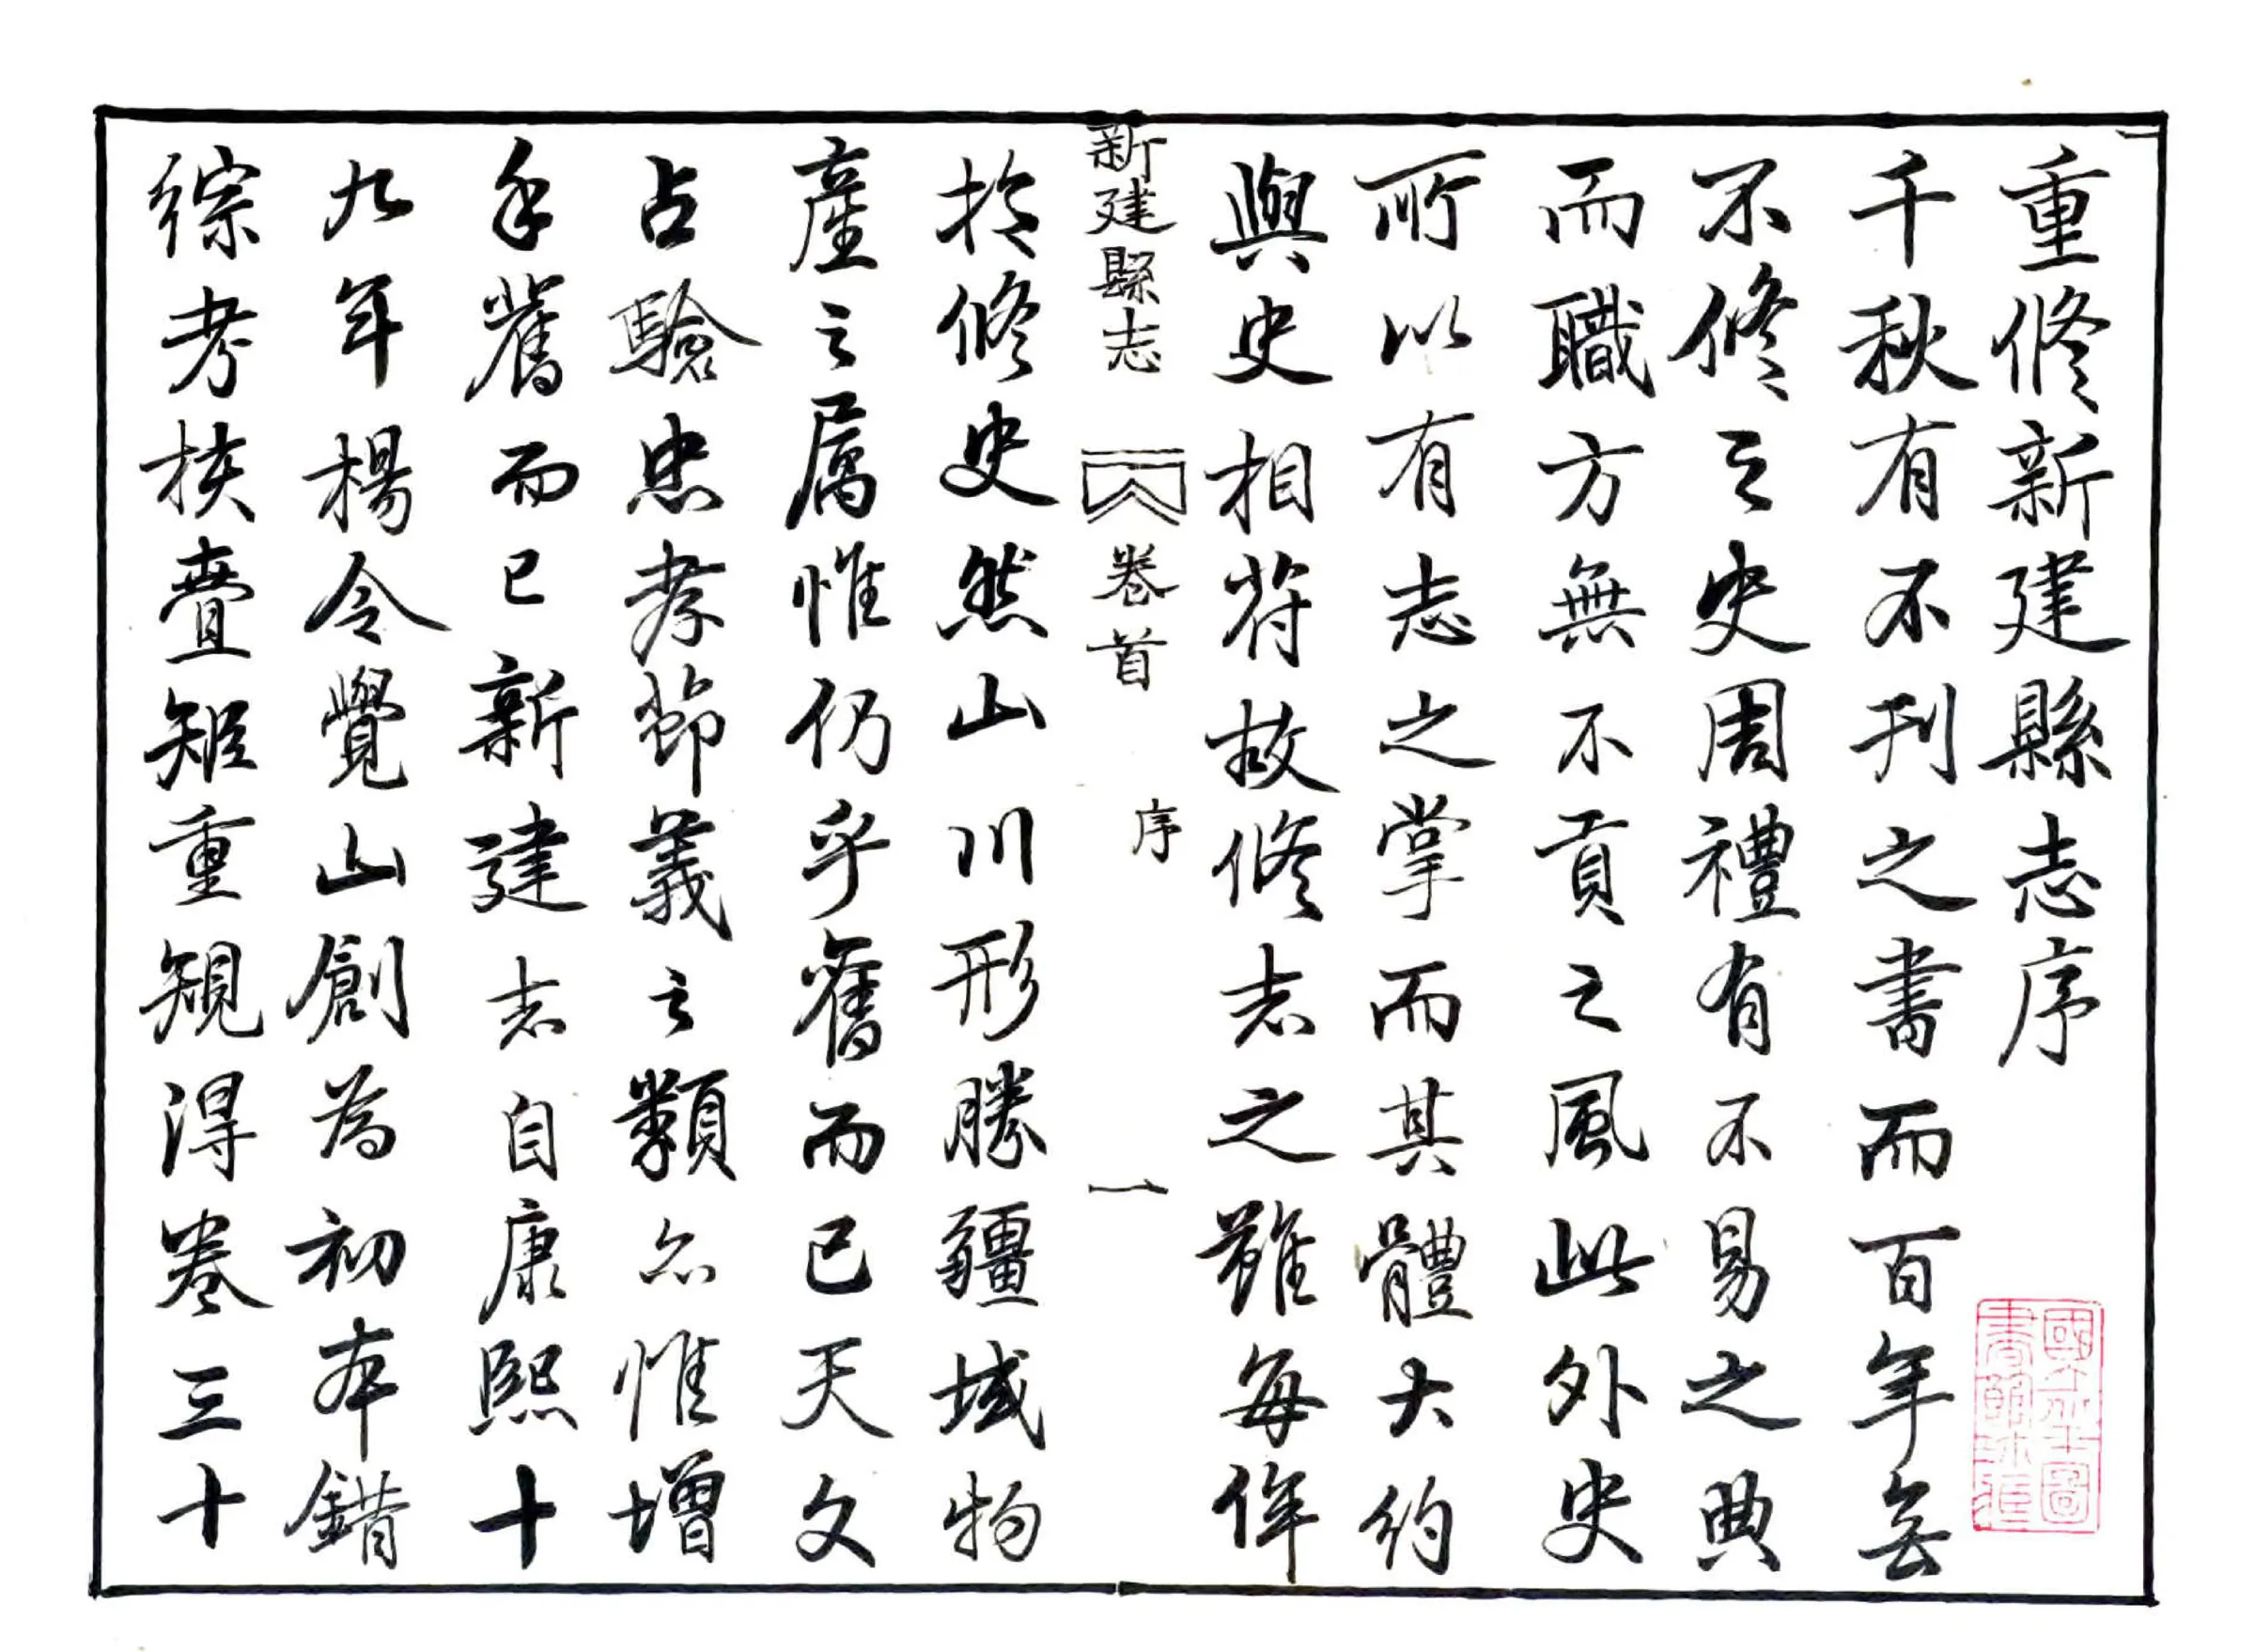 重修新建縣志序
千秋有不刊之書而百年無
不修之史周禮有不易之典
而職方無不貢之風此外史
所以有志之掌而其體大約
與史相符故修志之難每侔
新建縣志 卷首 序 一
於修史然山川形勝疆域物
產之屬惟仍乎舊而已天文
占驗忠孝節義之類亦惟增
手舊而已新建志自康熙十
九年楊令覺山創為初本錯
綜考核疊矩重規得卷三十